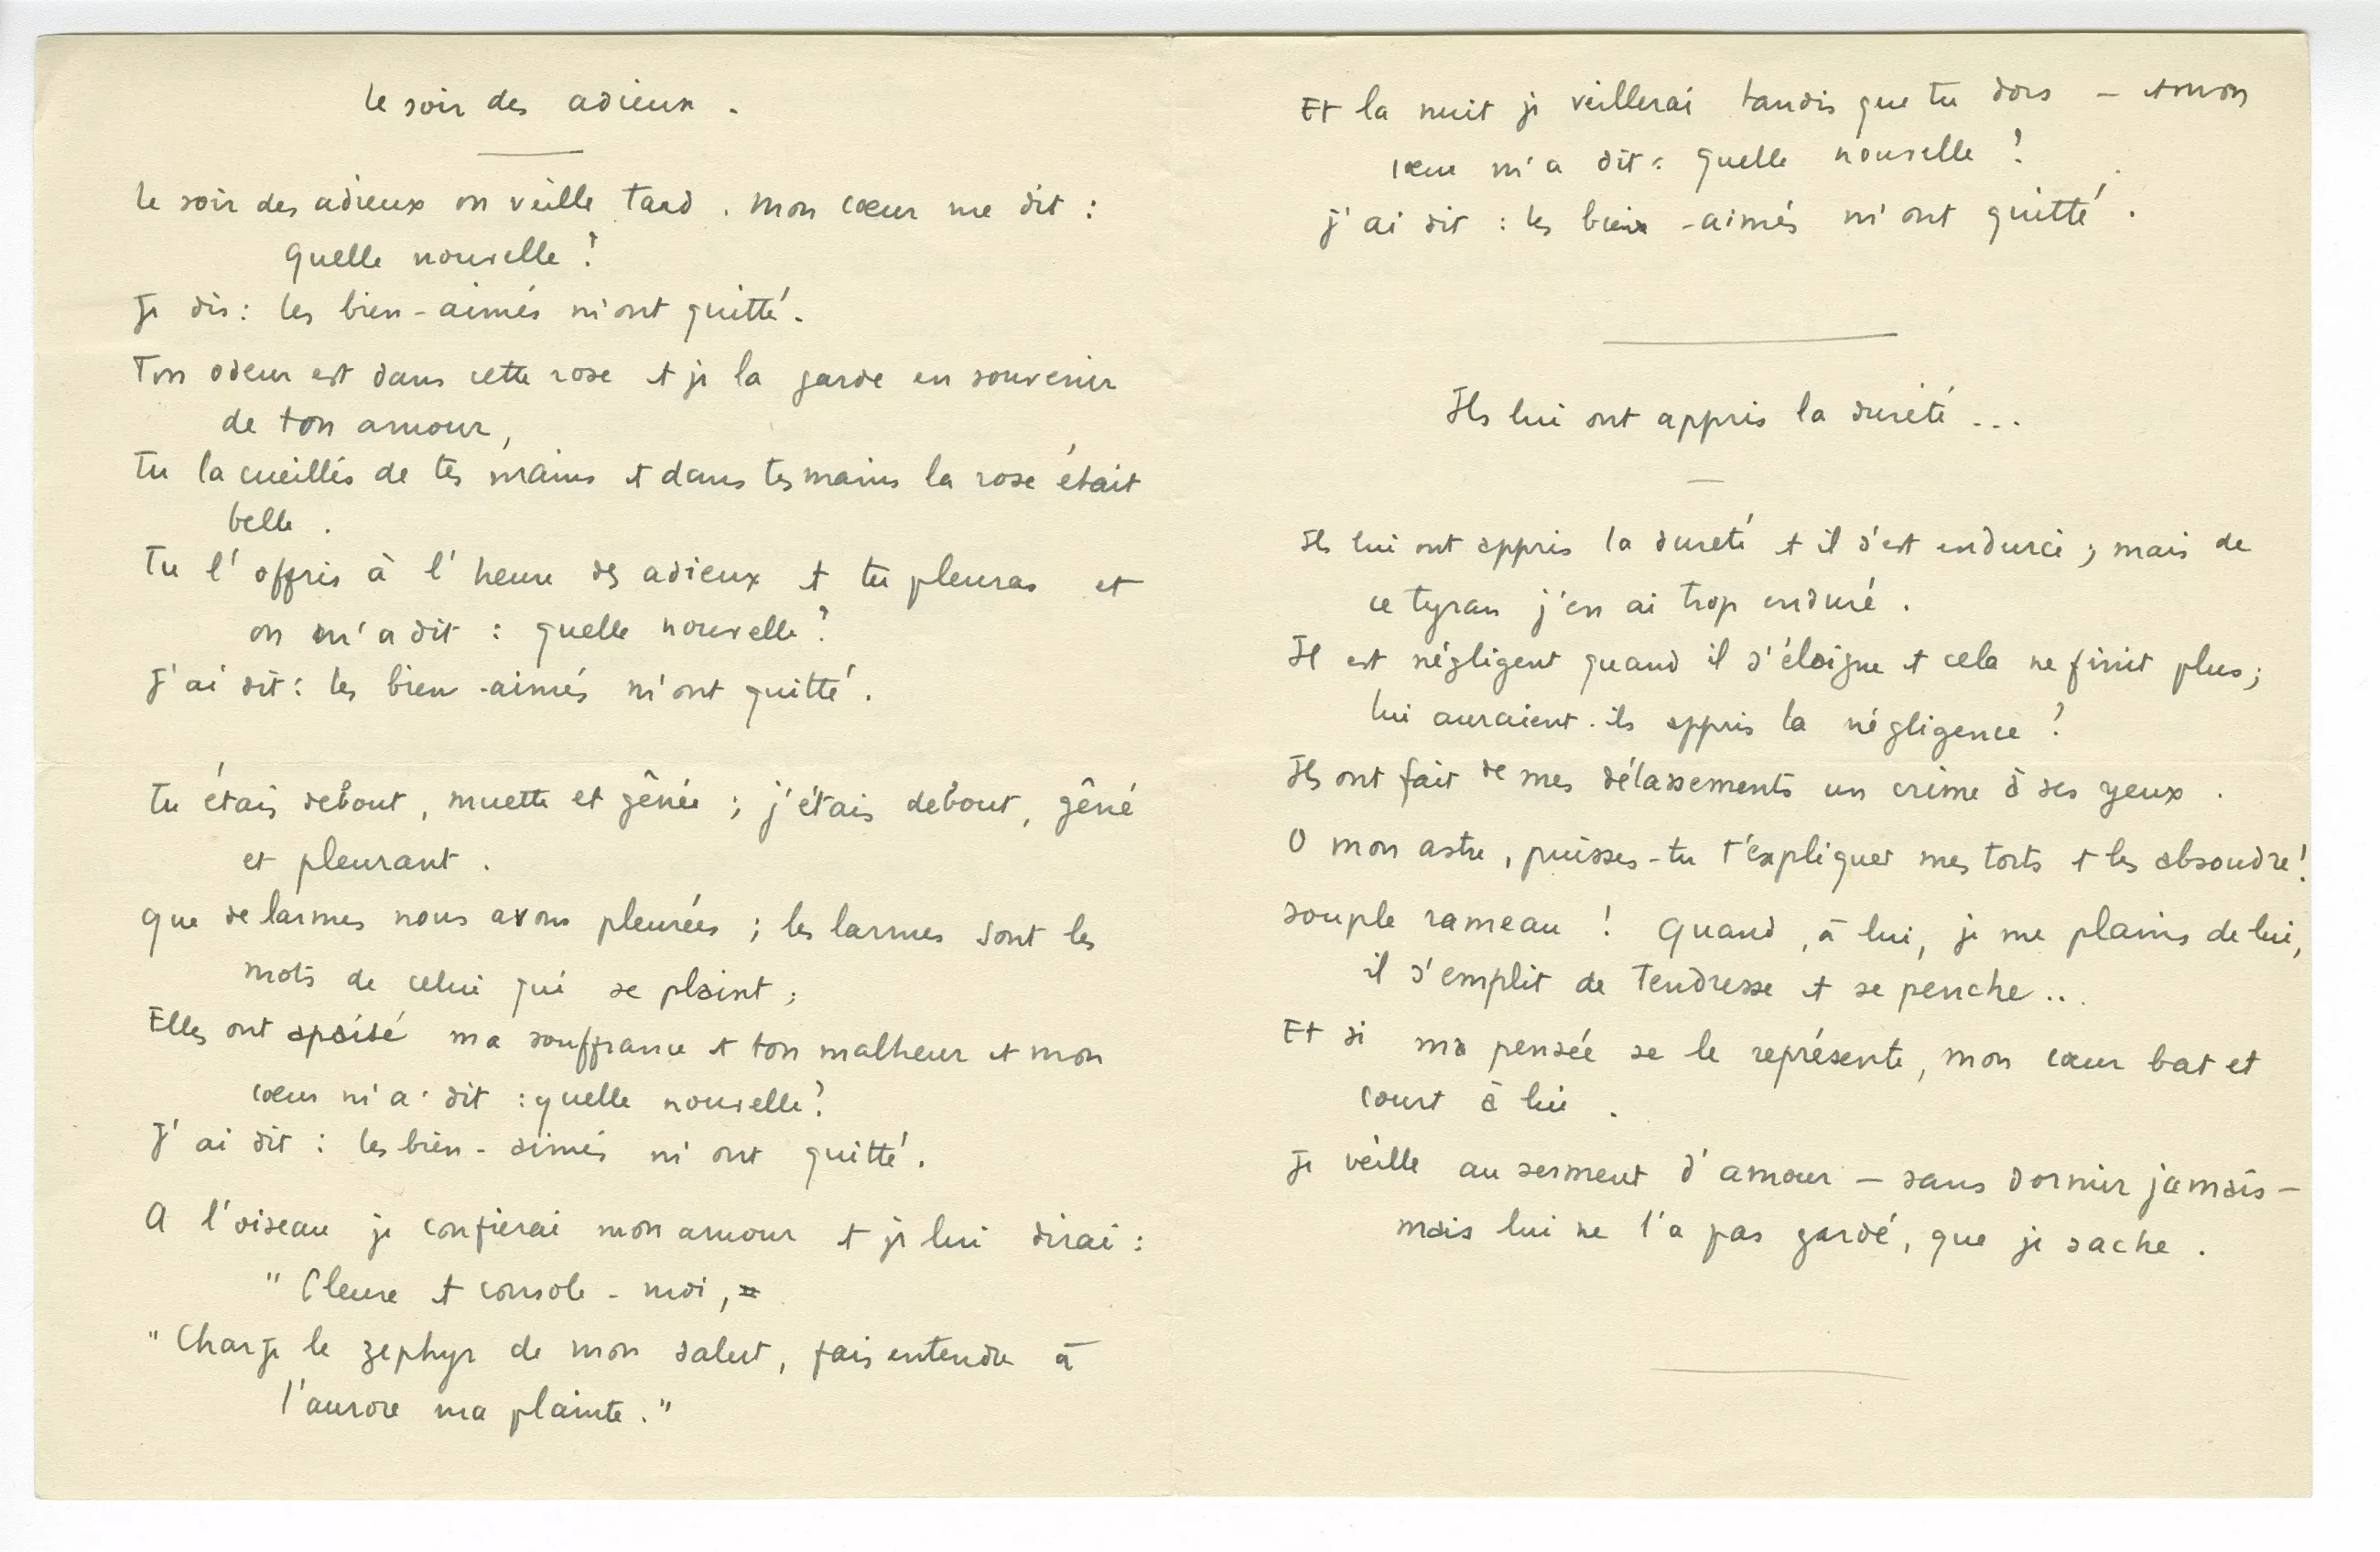 Le soir des adieux.
Le soir des adieux on veille tard. Mon cœur me dit :
Quelle nouvelle ?
Je dis : les bien-aimés m'ont quitté.
Ton odeur est dans cette rose et je la garde en souvenir
de ton amour,
Tu la cueillis de tes mains et dans tes mains la rose était
belle.
Tu l'offris à l'heure des adieux et tu pleuras et
on m'a dit : quelle nouvelle ?
J'ai dit : les bien-aimés m'ont quitté.
Tu étais debout, muette et gênée ; j'étais debout, gêné
et pleurant.
Que de larmes nous avons pleurées ; les larmes sont les
mots de celui qui se plaint ;
Elles ont apaisé ma souffrance et ton malheur et mon
cœur m'a dit : quelle nouvelle ?
J'ai dit : les bien-aimés m'ont quitté.
A l'oiseau je confierai mon amour et je lui dirai :
" Pleure et console-moi,
" Charge le zephyr de mon salut, fais entendre à
l'aurore ma plainte. "
Et la nuit je veillerai tandis que tu dors — et mon
cœur m'a dit : quelle nouvelle ?
J'ai dit : les bien-aimés m'ont quitté.
Ils lui ont appris la dureté ...
Ils lui ont appris la dureté et il s'est endurci ; mais de
ce tyran j'en ai trop enduré.
Il est négligent quand il s'éloigne et cela ne finit plus ;
lui auraient-ils appris la négligence ?
Ils ont fait de mes délassements un crime à ses yeux.
O mon astre, puisses-tu t'expliquer mes torts et les absoudre !
Souple rameau ! Quand, à lui, je me plains de lui,
il s'emplit de tendresse et se penche ...
Et si ma pensée se le représente, mon cœur bat et
court à lui.
Je veille au serment d'amour — sans dormir jamais —
mais lui ne l'a pas gardé, que je sache.